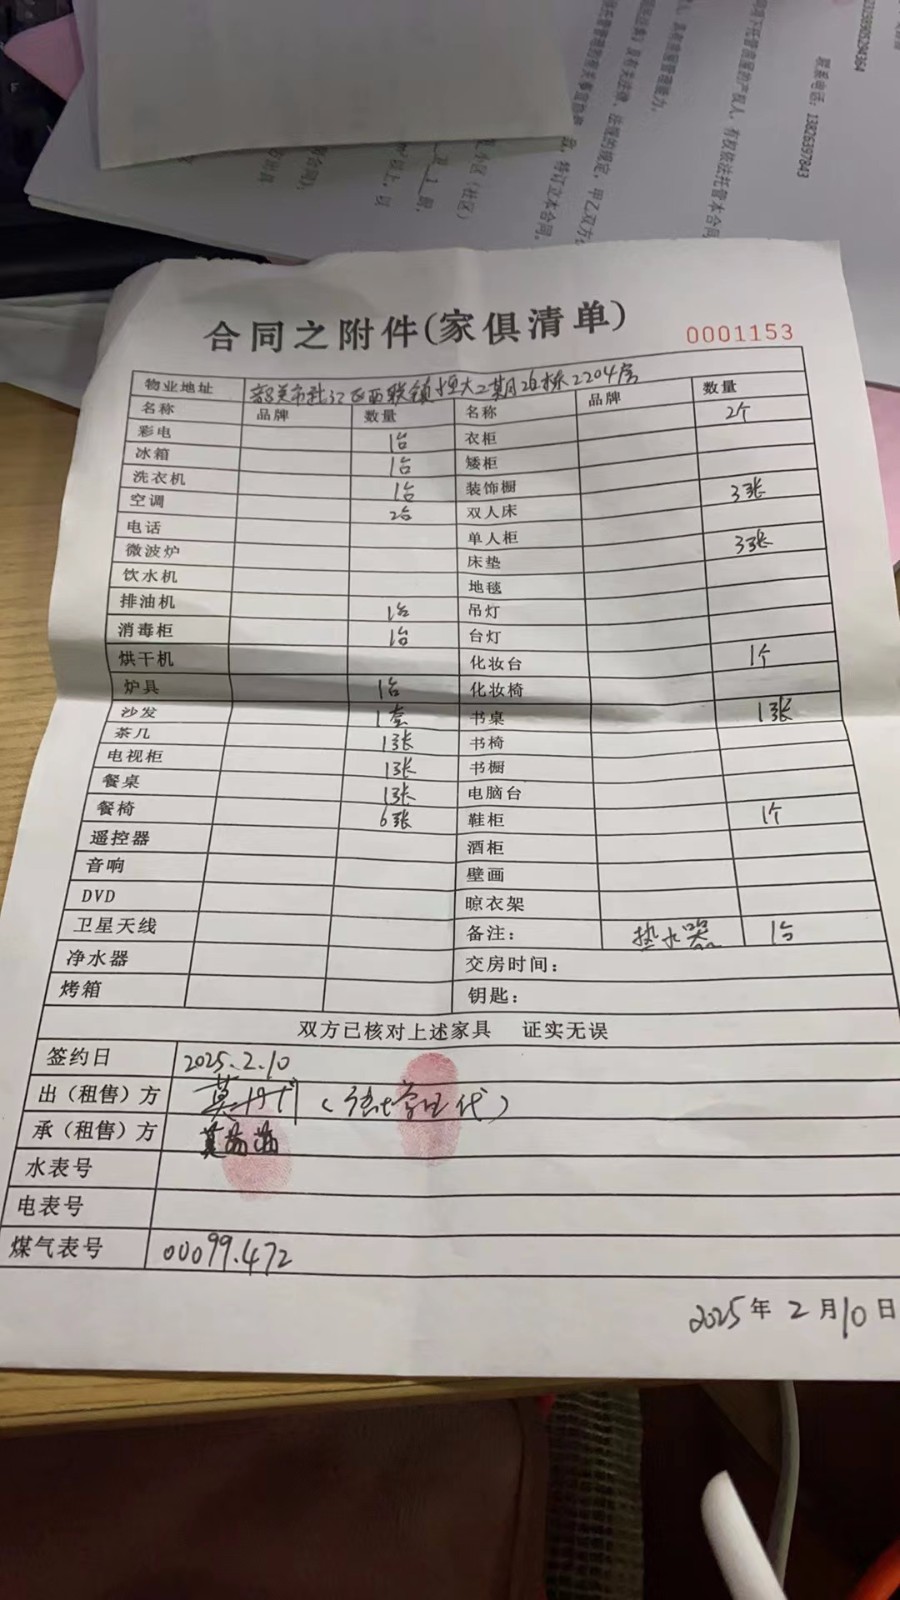 联系电话：13826397843
合同之附件(家俱清单)
0001153
物业地址 韶关市武江区西联镇恒大二期26栋2204房
名称 品牌 数量 名称 品牌 数量
彩电 1台 衣柜 2个
冰箱 1台 矮柜
洗衣机 1台 装饰橱
空调 2台 双人床 3张
电话 单人柜
微波炉 床垫 3张
饮水机 地毯
排油机 1台 吊灯
消毒柜 1台 台灯
烘干机 化妆台 1个
炉具 1台 化妆椅
沙发 1套 书桌 1张
茶几 1张 书椅
电视柜 1张 书橱
餐桌 1张 电脑台
餐椅 6张 鞋柜 1个
遥控器 酒柜
音响 壁画
DVD 晾衣架
卫星天线 备注： 热水器 1台
净水器 交房时间：
烤箱 钥匙：
双方已核对上述家具 证实无误
签约日 2025.2.10
出（租售）方
承（租售）方
水表号
电表号
煤气表号 00099.472
2025年2月10日